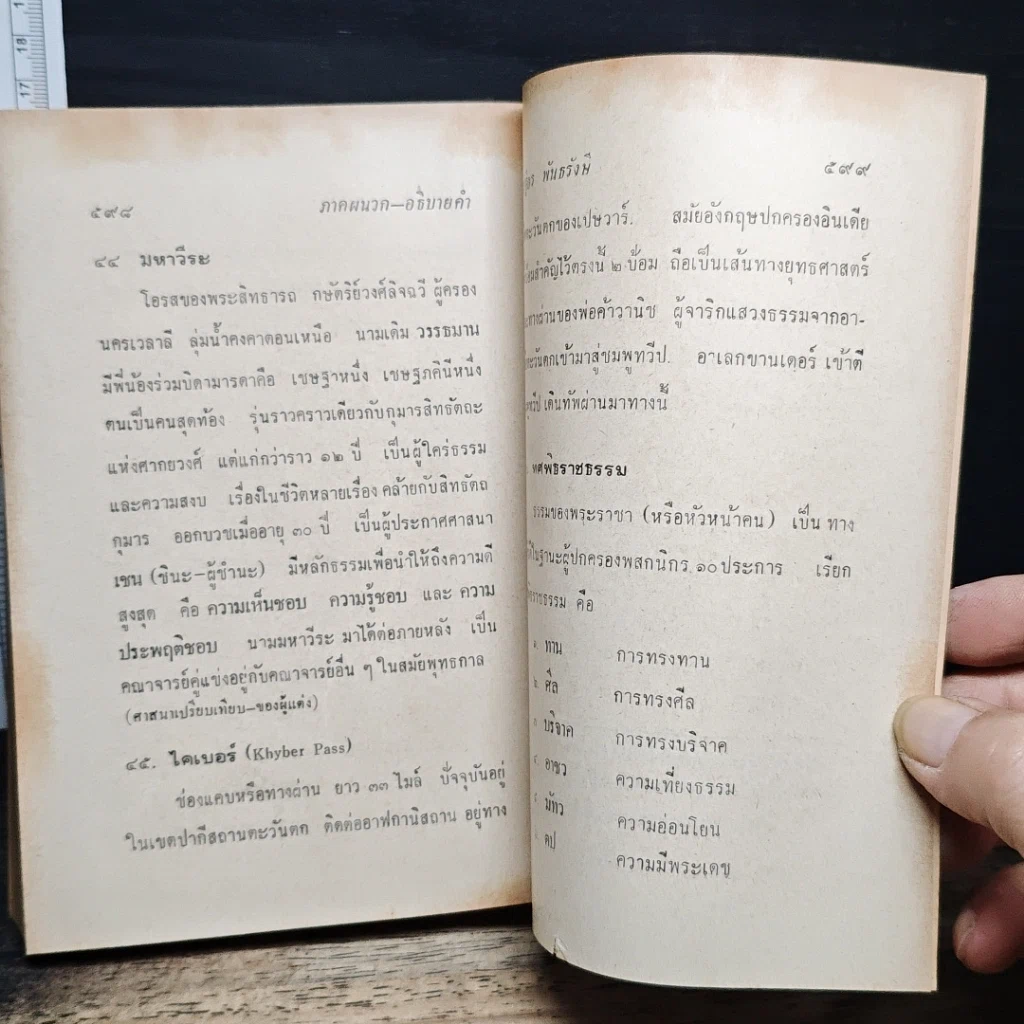 ๕๙๘ ภาคผนวก—อธิบายคำ
๔๔ มหาวีระ
โอรสของพระสิทธารถ กษัตริย์วงศ์ลิจฉวี ผู้ครอง
นครเวสาลี ลุ่มน้ำคงคาตอนเหนือ นามเดิม วรรธมาน
มีพี่น้องร่วมบิดามารดาคือ เชษฐาหนึ่ง เชษฐภคินีหนึ่ง
ตนเป็นคนสุดท้อง รุ่นราวคราวเดียวกับกุมารสิทธัตถะ
แห่งศากยวงศ์ แต่แก่กว่าราว ๑๒ ปี เป็นผู้ใคร่ธรรม
และความสงบ เรื่องในชีวิตหลายเรื่อง คล้ายกับสิทธัตถ
กุมาร ออกบวชเมื่ออายุ ๓๐ ปี เป็นผู้ประกาศศาสนา
เชน (ชินะ—ผู้ชำนะ) มีหลักธรรมเพื่อนำให้ถึงความดี
สูงสุด คือ ความเห็นชอบ ความรู้ชอบ และ ความ
ประพฤติชอบ นามมหาวีระ มาได้ต่อภายหลัง เป็น
คณาจารย์คู่แข่งอยู่กับคณาจารย์อื่น ๆ ในสมัยพุทธกาล
(ศาสนาเปรียบเทียบ—ของผู้แต่ง)
๔๕. ไคเบอร์ (Khyber Pass)
ช่องแคบหรือทางผ่าน ยาว ๓๓ ไมล์ ปัจจุบันอยู่
ในเขตปากีสถานตะวันตก ติดต่ออาฟกานิสถาน อยู่ทาง
พันธรังษี ๕๙๙
ตะวันตกของเปษวาร์. สมัยอังกฤษปกครองอินเดีย
สำคัญไว้ตรงนี้ ๒ ป้อม ถือเป็นเส้นทางยุทธศาสตร์
ทางผ่านของพ่อค้าวานิช ผู้จาริกแสวงธรรมจากอา-
ตะวันตกเข้ามาสู่ชมพูทวีป. อาเลกซานเดอร์ เข้าตี
เดินทัพผ่านมาทางนี้
ทศพิธราชธรรม
ธรรมของพระราชา (หรือหัวหน้าคน) เป็น ทาง
ในฐานะผู้ปกครองพสกนิกร ๑๐ ประการ เรียก
ราชธรรม คือ
๑ ทาน การทรงทาน
๒ ศีล การทรงศีล
๓ บริจาค การทรงบริจาค
๔ อาชว ความเที่ยงธรรม
๕ มัทว ความอ่อนโยน
ตป ความมีพระเดช